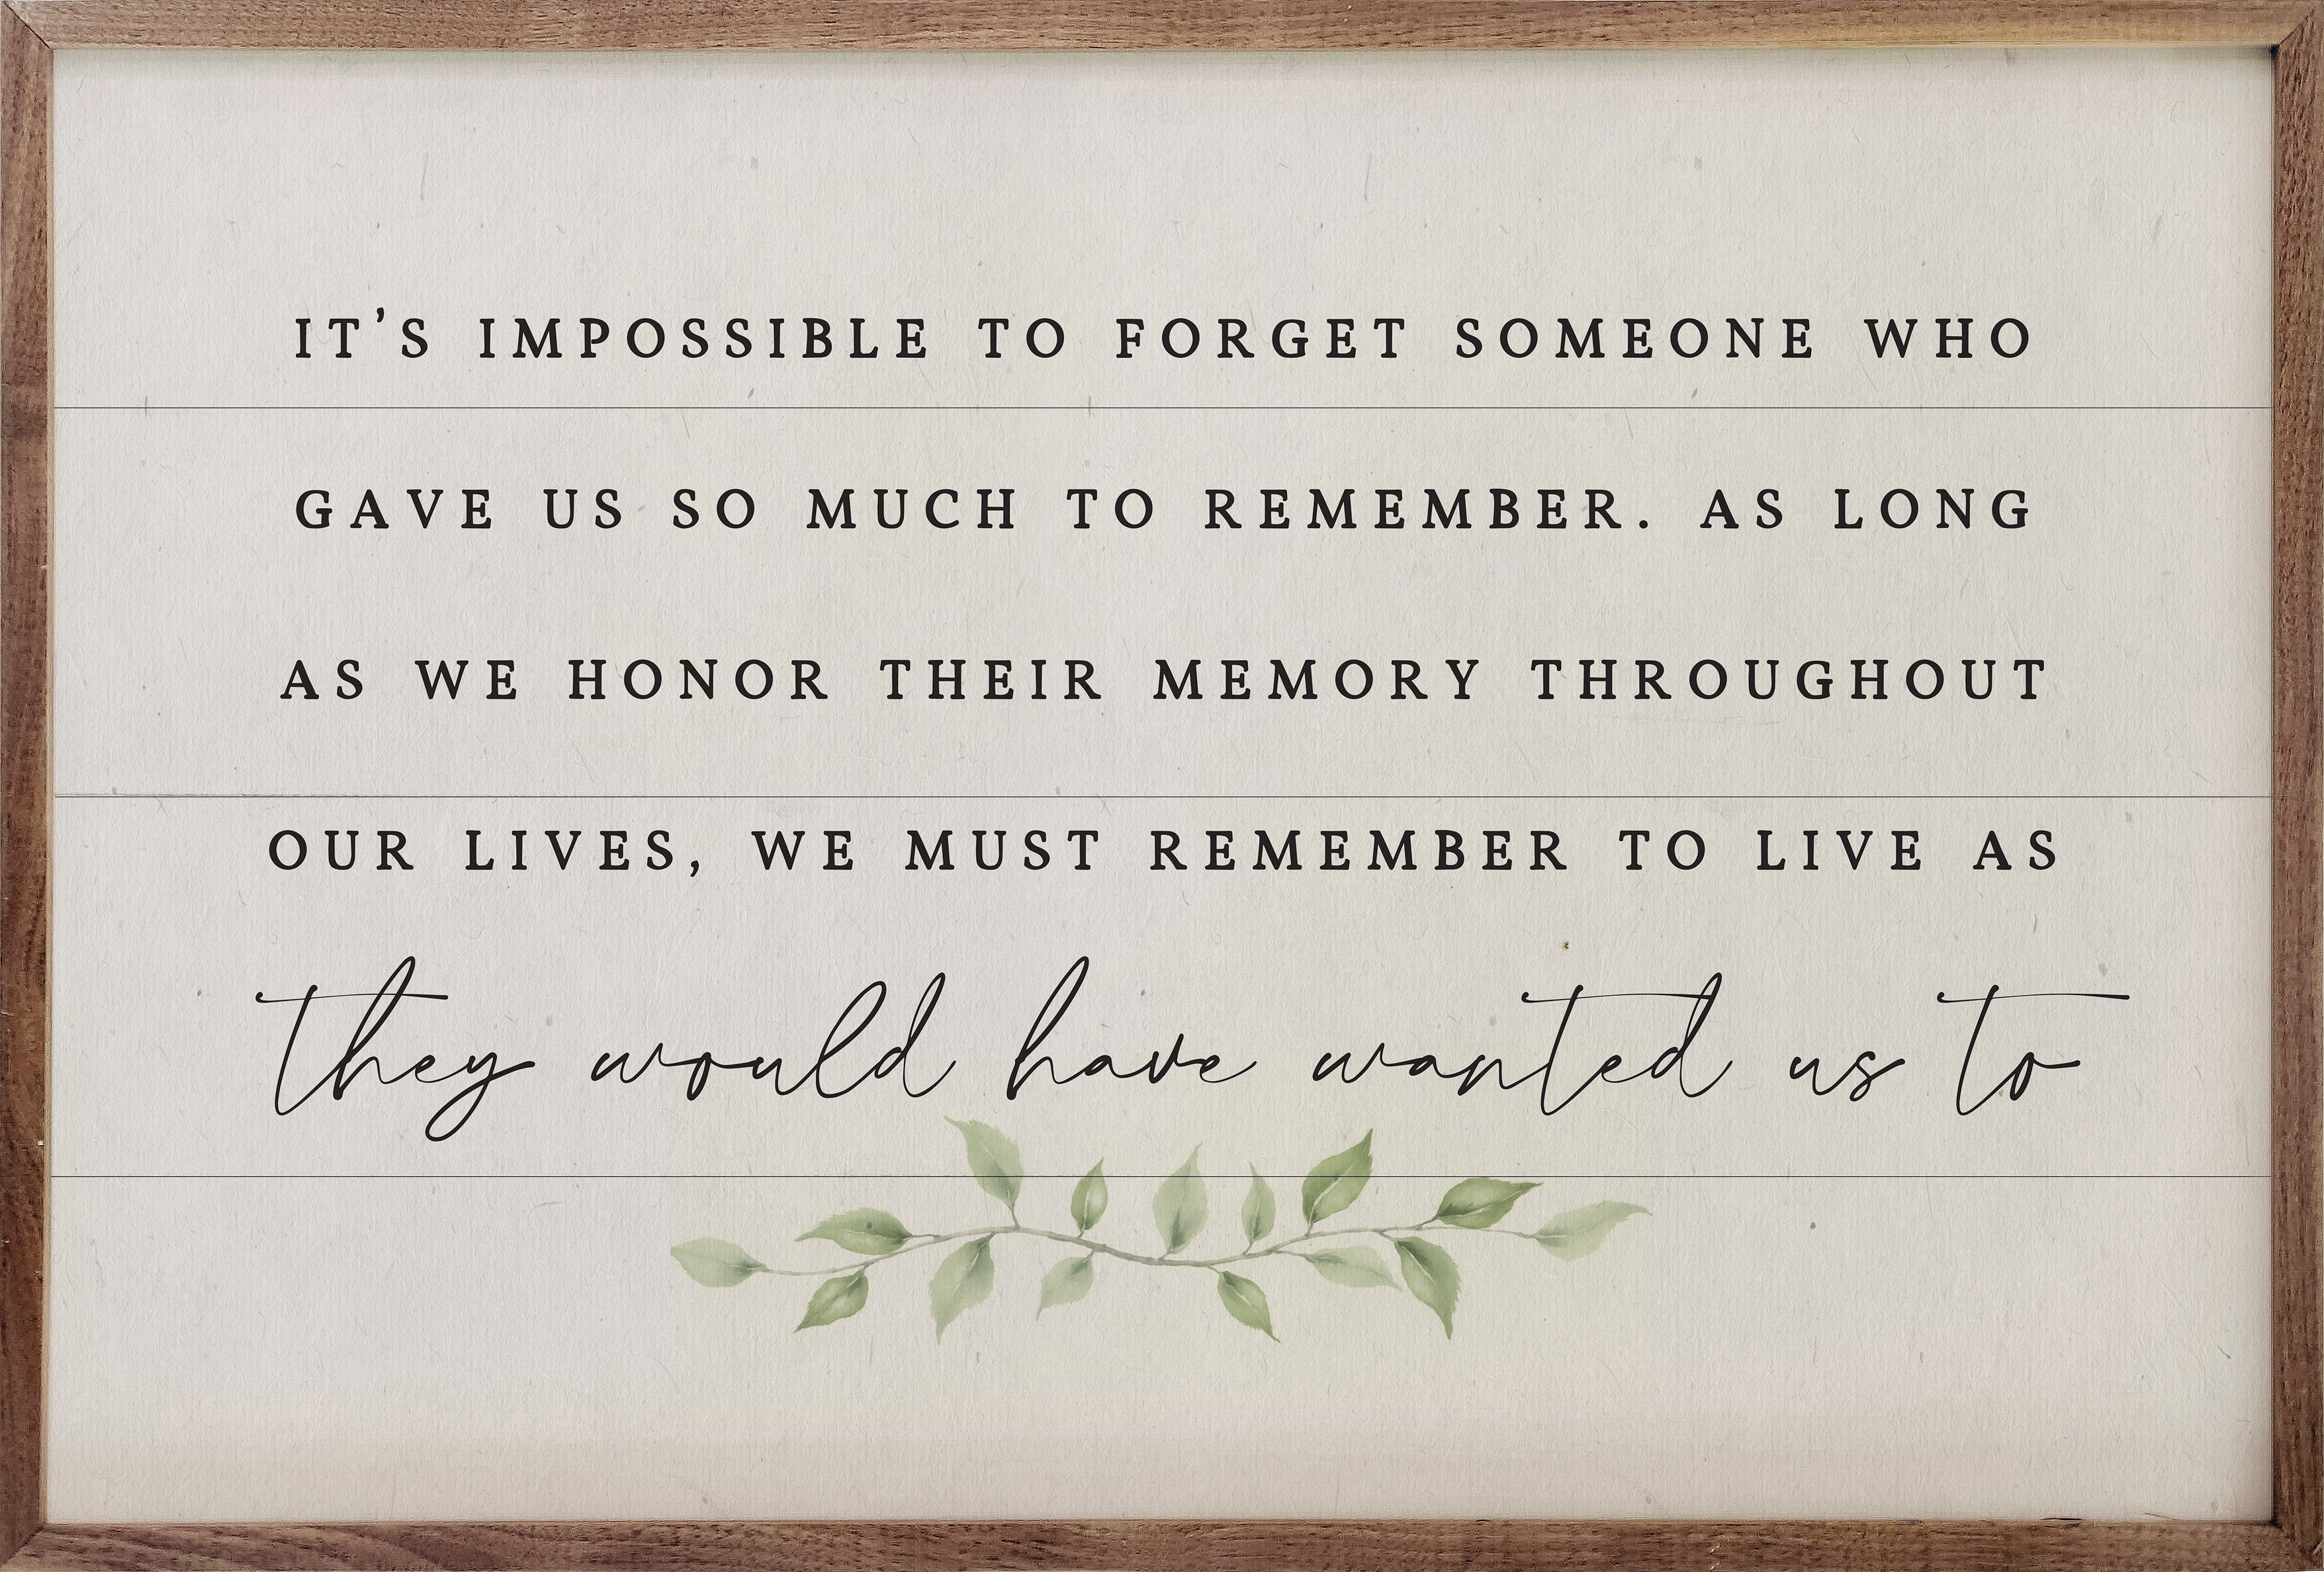 IT'S IMPOSSIBLE TO FORGET SOMEONE WHO
GAVE US SO MUCH TO REMEMBER. AS LONG
AS WE HONOR THEIR MEMORY THROUGHOUT
OUR LIVES, WE MUST REMEMBER TO LIVE AS
they would have wanted us to